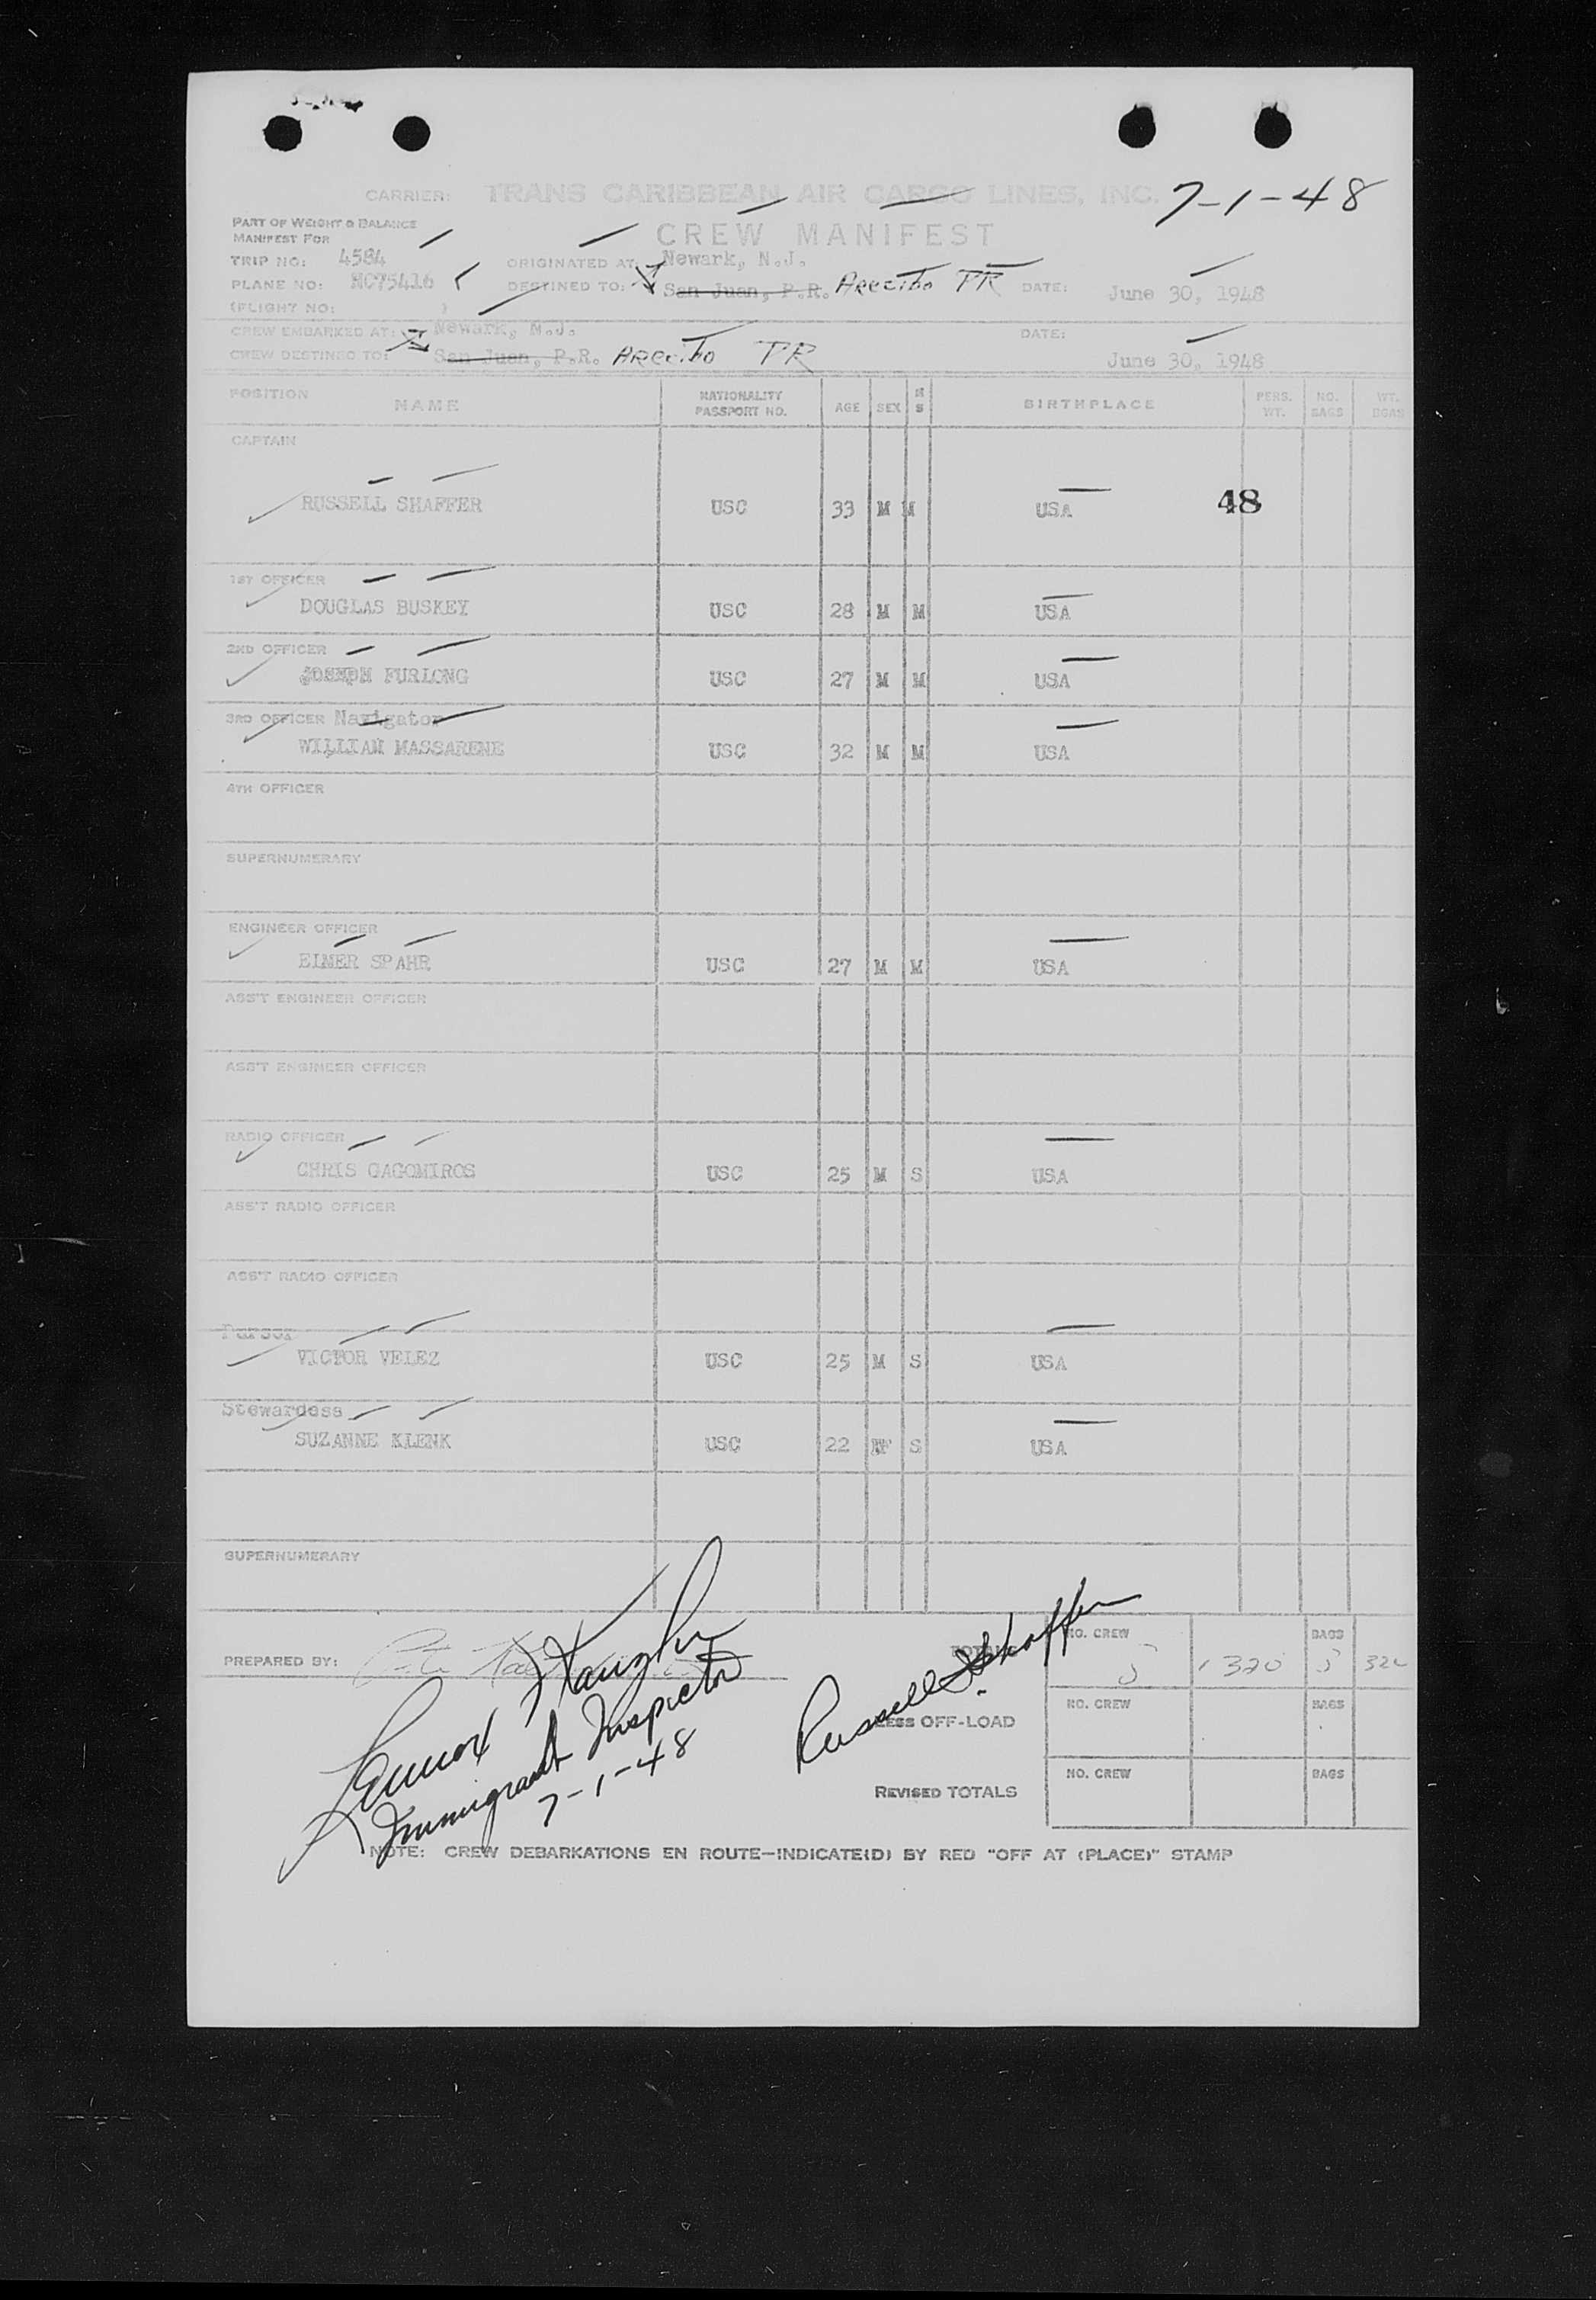 CARRIER: TRANS CARIBBEAN AIR CARGO LINES, INC. 7-1-48
PART OF WEIGHT & BALANCE
MANIFEST FOR
CREW MANIFEST
TRIP NO: 4584 ORIGINATED AT: Newark, N.J.
PLANE NO: NC75416 DESTINED TO: San Juan, P.R. Arecibo PR DATE: June 30, 1948
(FLIGHT NO: )
CREW EMBARKED AT: Newark, N.J. DATE:
CREW DESTINED TO: San Juan, P.R. Arecibo PR June 30, 1948
POSITION NAME NATIONALITY PASSPORT NO. AGE SEX M S BIRTHPLACE PERS. WT. NO. BAGS WT. BGAS
CAPTAIN
RUSSELL SHAFFER USC 33 M M USA 48
1ST OFFICER
DOUGLAS BUSKEY USC 28 M M USA
2ND OFFICER
JOSEPH FURLONG USC 27 M M USA
3RD OFFICER Navigator
WILLIAM MASSARENE USC 32 M M USA
4TH OFFICER
SUPERNUMERARY
ENGINEER OFFICER
ELMER SPAHR USC 27 M M USA
ASS'T ENGINEER OFFICER
ASS'T ENGINEER OFFICER
RADIO OFFICER
CHRIS GAGOMIROS USC 25 M S USA
ASS'T RADIO OFFICER
ASS'T RADIO OFFICER
Purser
VICTOR VELEZ USC 25 M S USA
Stewardess
SUZANNE KLENK USC 22 F S USA
SUPERNUMERARY
PREPARED BY: TOTALS NO. CREW 5 1320 BAGS 5
Lennox Vaughn
Immigrant Inspector
7-1-48
Russell Shaffer
LESS OFF-LOAD NO. CREW BAGS
REVISED TOTALS NO. CREW BAGS
NOTE: CREW DEBARKATIONS EN ROUTE—INDICATE(D) BY RED "OFF AT (PLACE)" STAMP